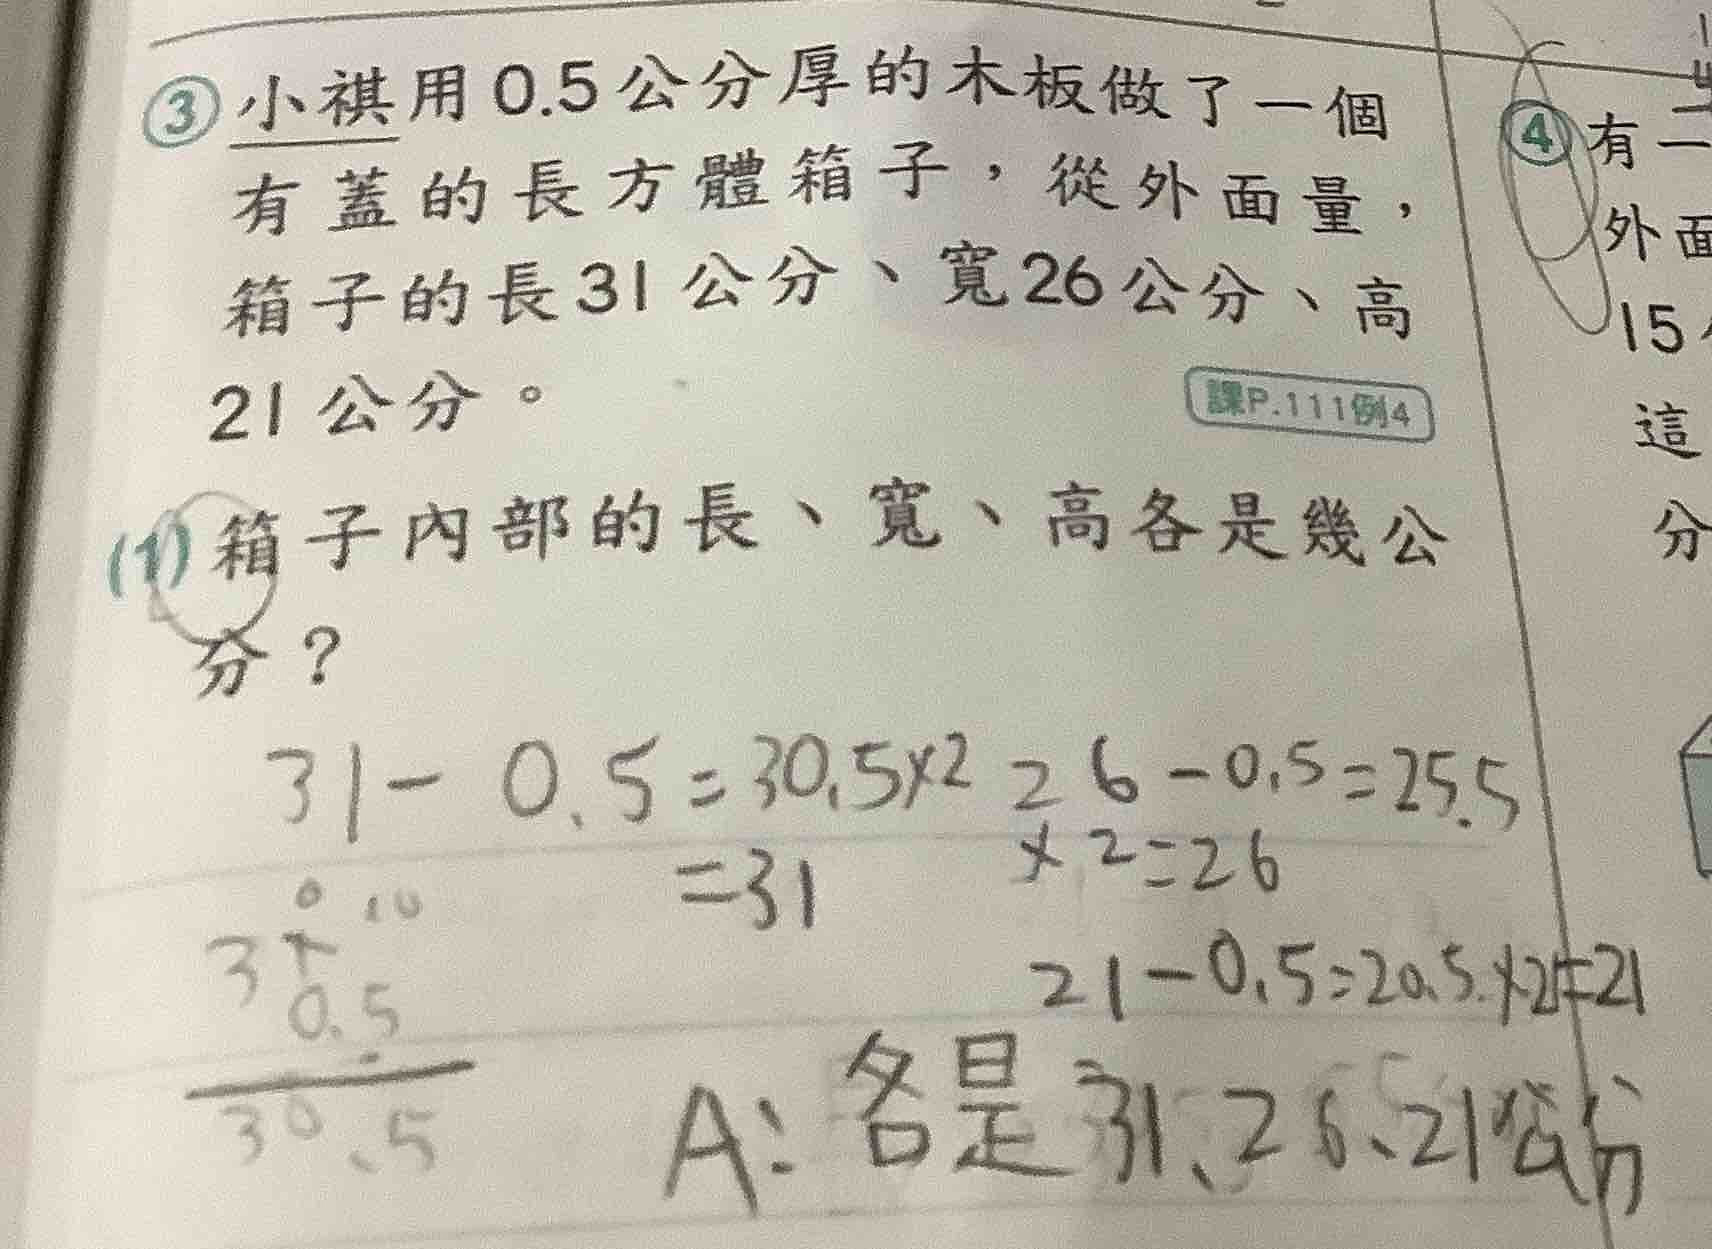 ③ 小祺用0.5公分厚的木板做了一個
有蓋的長方體箱子，從外面量，
箱子的長31公分、寬26公分、高
21公分。
課P.111例4
(1) 箱子內部的長、寬、高各是幾公
分？
31-0.5=30.5×2
=31
26-0.5=25.5
×2=26
21-0.5=20.5×2=21
0 10
31
0.5
30.5
A:各是31、26、21公分
④ 有一
外面
15
這
分